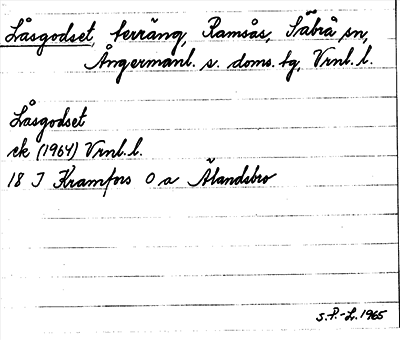 Låsgodset, terräng, Ramsås, Säbrå sn,
Ångermanl. s. doms. tg, Vrnl. l.
Låsgodset
ek (1964) Vrnl. l.
18 J Kramfors O a Älandsbro
S.P.-L. 1965